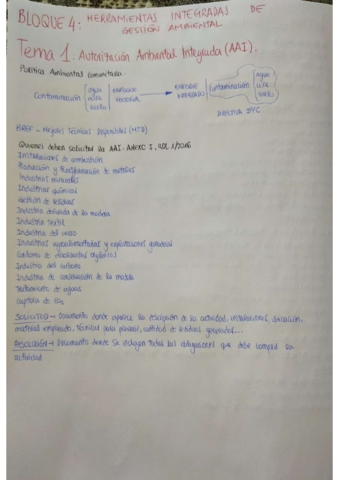 BLOQUE 4: HERRAMIENTAS INTEGRADAS DE
GESTIÓN AMBIENTAL
Tema 1. Autorización Ambiental Integrada (AAI).
Política Ambiental Comunitaria
Contaminación agua aire suelo ENFOQUE SECTORIAL ENFOQUE INTEGRADO Contaminación agua aire suelo
DIRECTIVA IPPC
BREF - Mejores Técnicas Disponibles (MTD)
Quienes deben solicitar la AAI. Anexo I, RDL 1/2016
Instalaciones de combustión
Producción y transformación de metales
Industrias minerales
Industrias químicas
Gestión de residuos
Industria derivada de la madera
Industria textil
Industria del cuero
Industrias agroalimentarias y explotaciones ganaderas
Consumo de disolventes orgánicos
Industria del carbono
Industria de conservación de la madera
Tratamiento de aguas
Captura de CO2
SOLICITUD → Documento donde aparece la descripción de la actividad, instalaciones, ubicación,
material empleado, técnicas para prevenir, cantidad de residuos generados...
RESOLUCIÓN → Documento donde se incluyen todas las obligaciones que debe cumplir esa
actividad